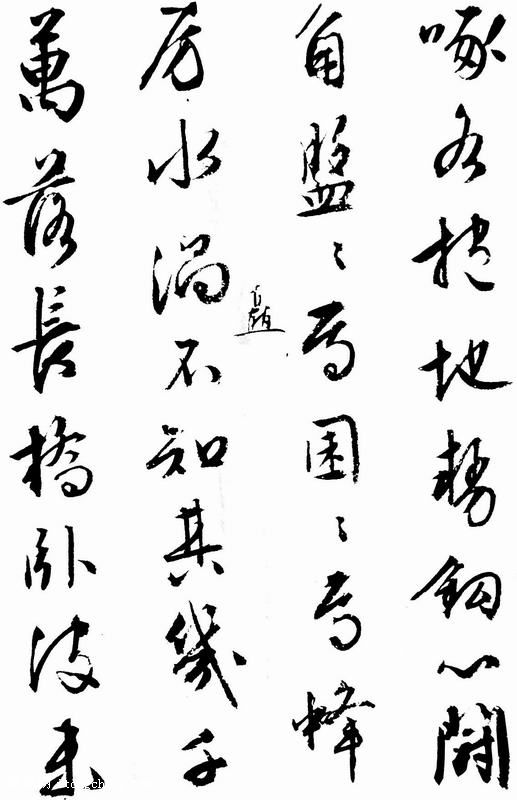 啄各抱地勢鈎心鬪
角盤〻焉囷〻焉蜂
矗
房水渦不知其幾千
萬落長橋卧波未